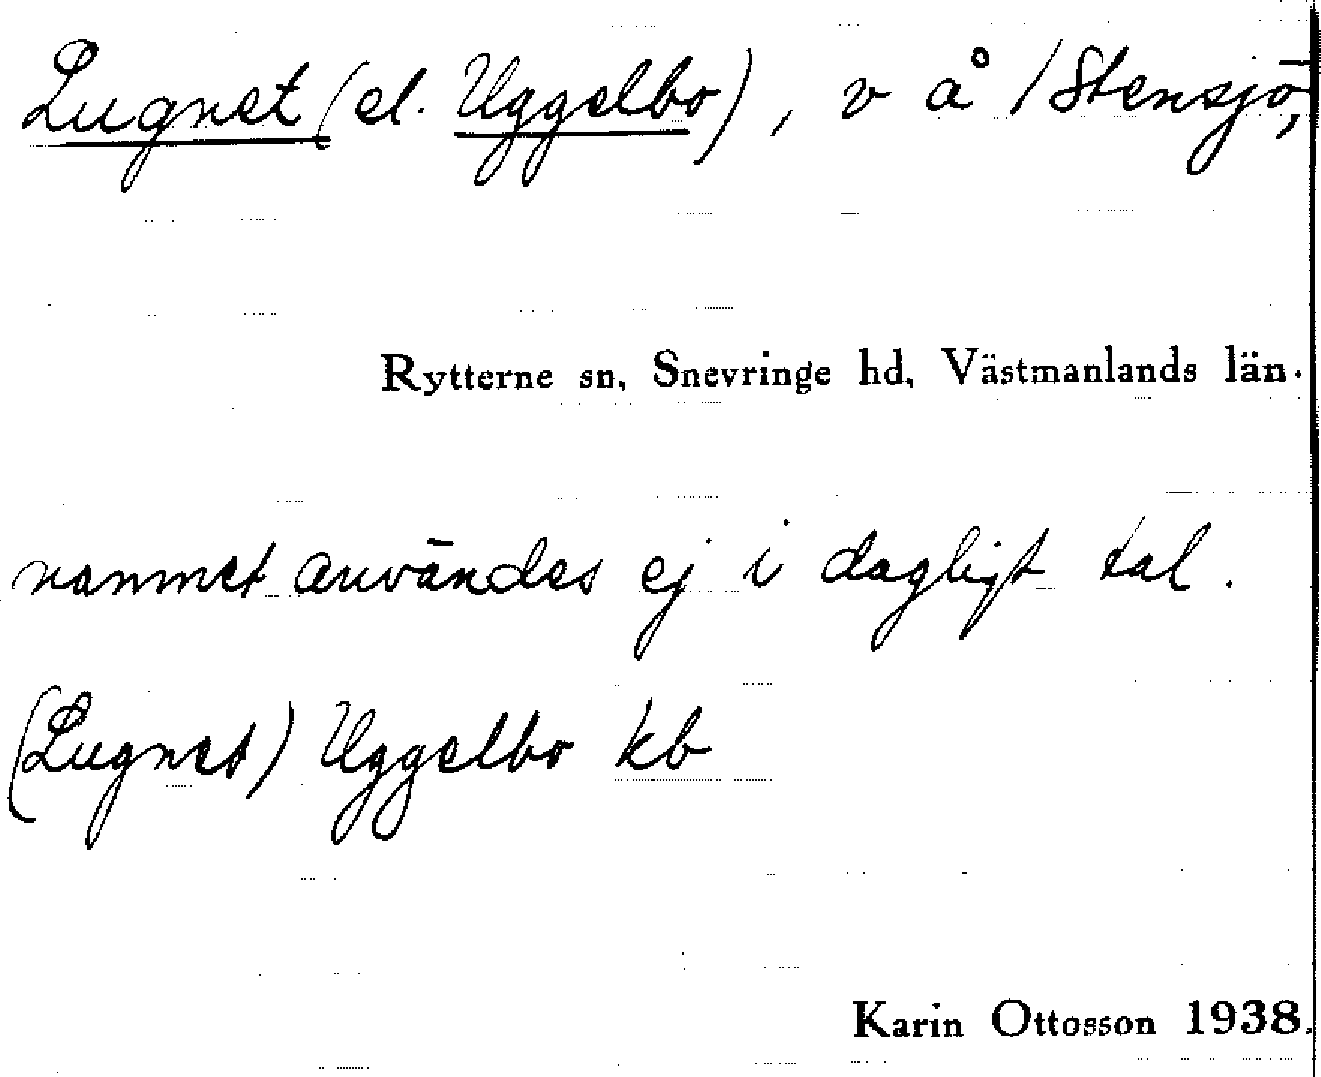 Lugnet (el. Uggelbo), v å /Stensjö,
Rytterne sn, Snevringe hd, Västmanlands län.
namnet användes ej i dagligt tal.
(Lugnet) Uggelbo kb
Karin Ottosson 1938.